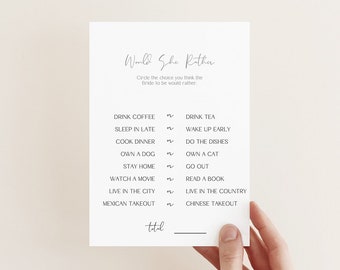 Would She Rather
Circle the choice you think the
Bride to be would rather.
DRINK COFFEE or DRINK TEA
SLEEP IN LATE or WAKE UP EARLY
COOK DINNER or DO THE DISHES
OWN A DOG or OWN A CAT
STAY HOME or GO OUT
WATCH A MOVIE or READ A BOOK
LIVE IN THE CITY or LIVE IN THE COUNTRY
MEXICAN TAKEOUT or CHINESE TAKEOUT
total